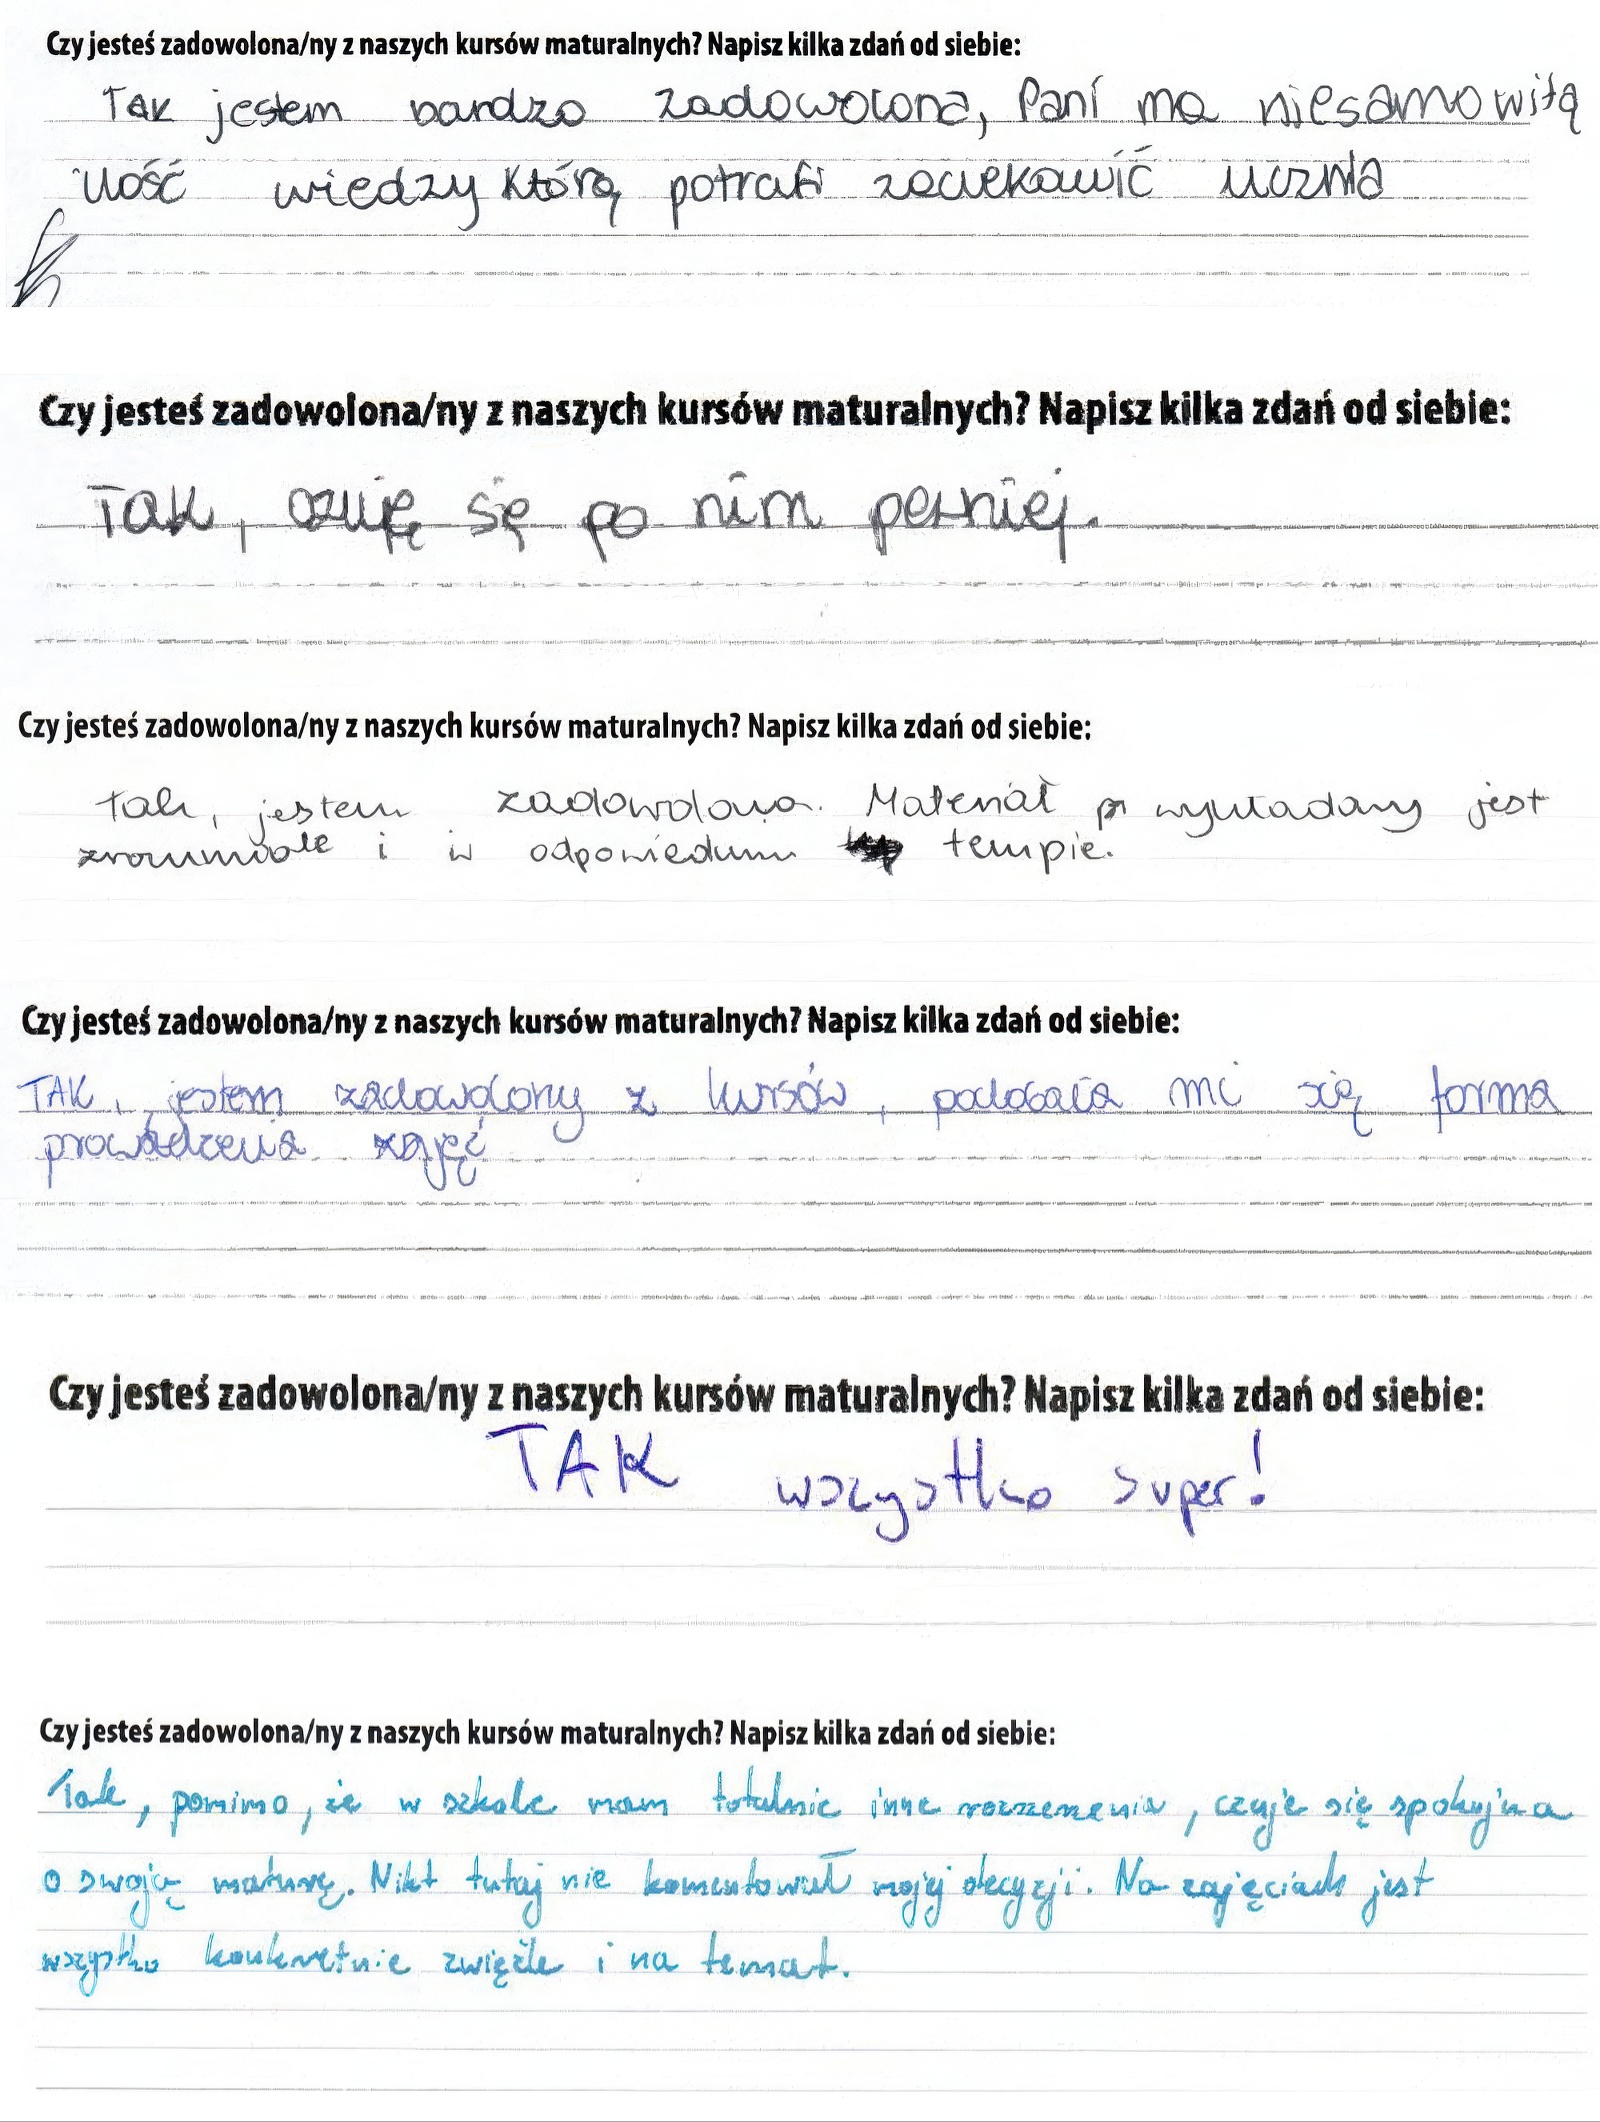 Czy jesteś zadowolona/ny z naszych kursów maturalnych? Napisz kilka zdań od siebie:
Tak jestem bardzo zadowolona, Pani ma niesamowitą
ilość wiedzy którą potrafi zaciekawić ucznia
Czy jesteś zadowolona/ny z naszych kursów maturalnych? Napisz kilka zdań od siebie:
Tak, czuję się po nim pewniej.
Czy jesteś zadowolona/ny z naszych kursów maturalnych? Napisz kilka zdań od siebie:
Tak, jestem zadowolona. Materiał wykładany jest
zrozumiale i w odpowiednim tempie.
Czy jesteś zadowolona/ny z naszych kursów maturalnych? Napisz kilka zdań od siebie:
TAK, jestem zadowolony z kursów, podobała mi się forma
prowadzenia zajęć
Czy jesteś zadowolona/ny z naszych kursów maturalnych? Napisz kilka zdań od siebie:
TAK wszystko super!
Czy jesteś zadowolona/ny z naszych kursów maturalnych? Napisz kilka zdań od siebie:
Tak, pomimo, że w szkole mam totalnie inne rozszerzenia, czuje się spokojna
o swoją maturę. Nikt tutaj nie komentował mojej decyzji. Na zajęciach jest
wszystko konkretnie zwięźle i na temat.